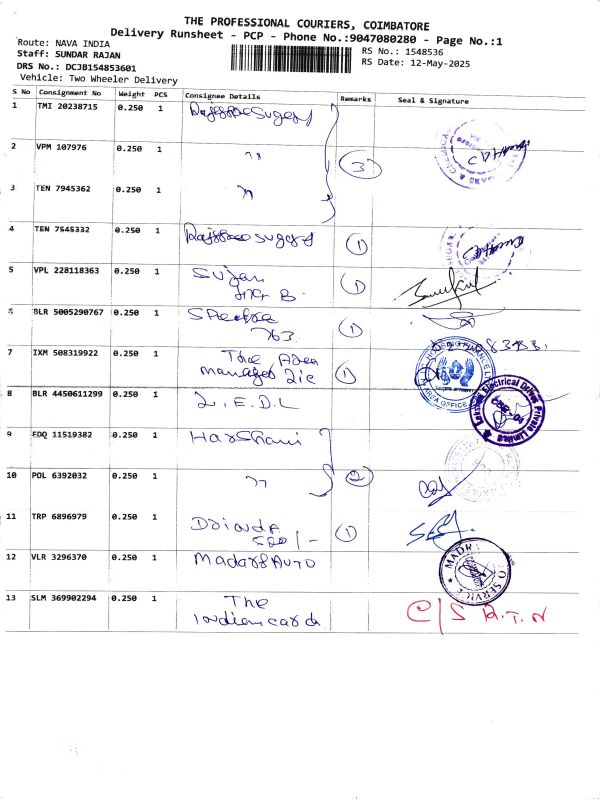 THE PROFESSIONAL COURIERS, COIMBATORE
Delivery Runsheet - PCP - Phone No.:9047080280 - Page No.:1
Route: NAVA INDIA
Staff: SUNDAR RAJAN
DRS No.: DCJB154853601
Vehicle: Two Wheeler Delivery
RS No.: 1548536
RS Date: 12-May-2025
S No Consignment No Weight PCS Consignee Details Remarks Seal & Signature
1 TMI 20238715 0.250 1
2 VPM 107976 0.250 1 " 3
3 TEN 7945362 0.250 1 "
4 TEN 7545332 0.250 1 1
5 VPL 228118363 0.250 1 Sujan 1
B
6 BLR 5005290767 0.250 1 Spectra 1
763
7 IXM 508319922 0.250 1 The Area 1
manager Lic
8 BLR 4450611299 0.250 1 L.E.D.L
Lakshmi Electrical Drives Private Limited
9 EDQ 11519382 0.250 1 Harshani
10 POL 6392032 0.250 1 " 2
11 TRP 6896979 0.250 1 1
520/-
12 VLR 3296370 0.250 1 Madars Auto
13 SLM 369902294 0.250 1 The C/S R.T.N
Indian card